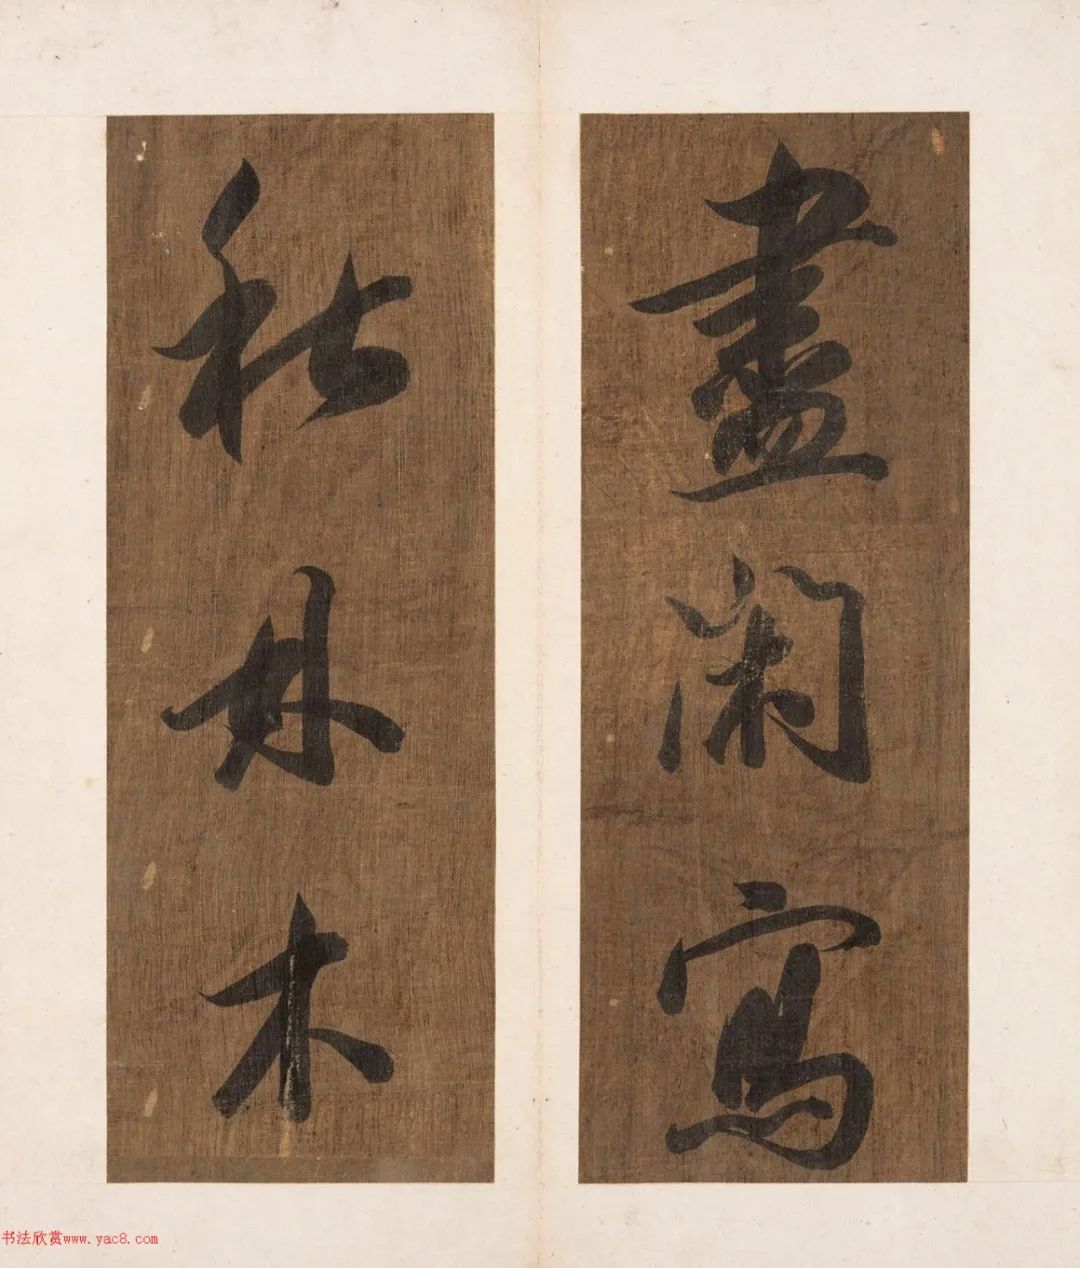 盡閑寫
秋林木
书法欣赏www.yac8.com